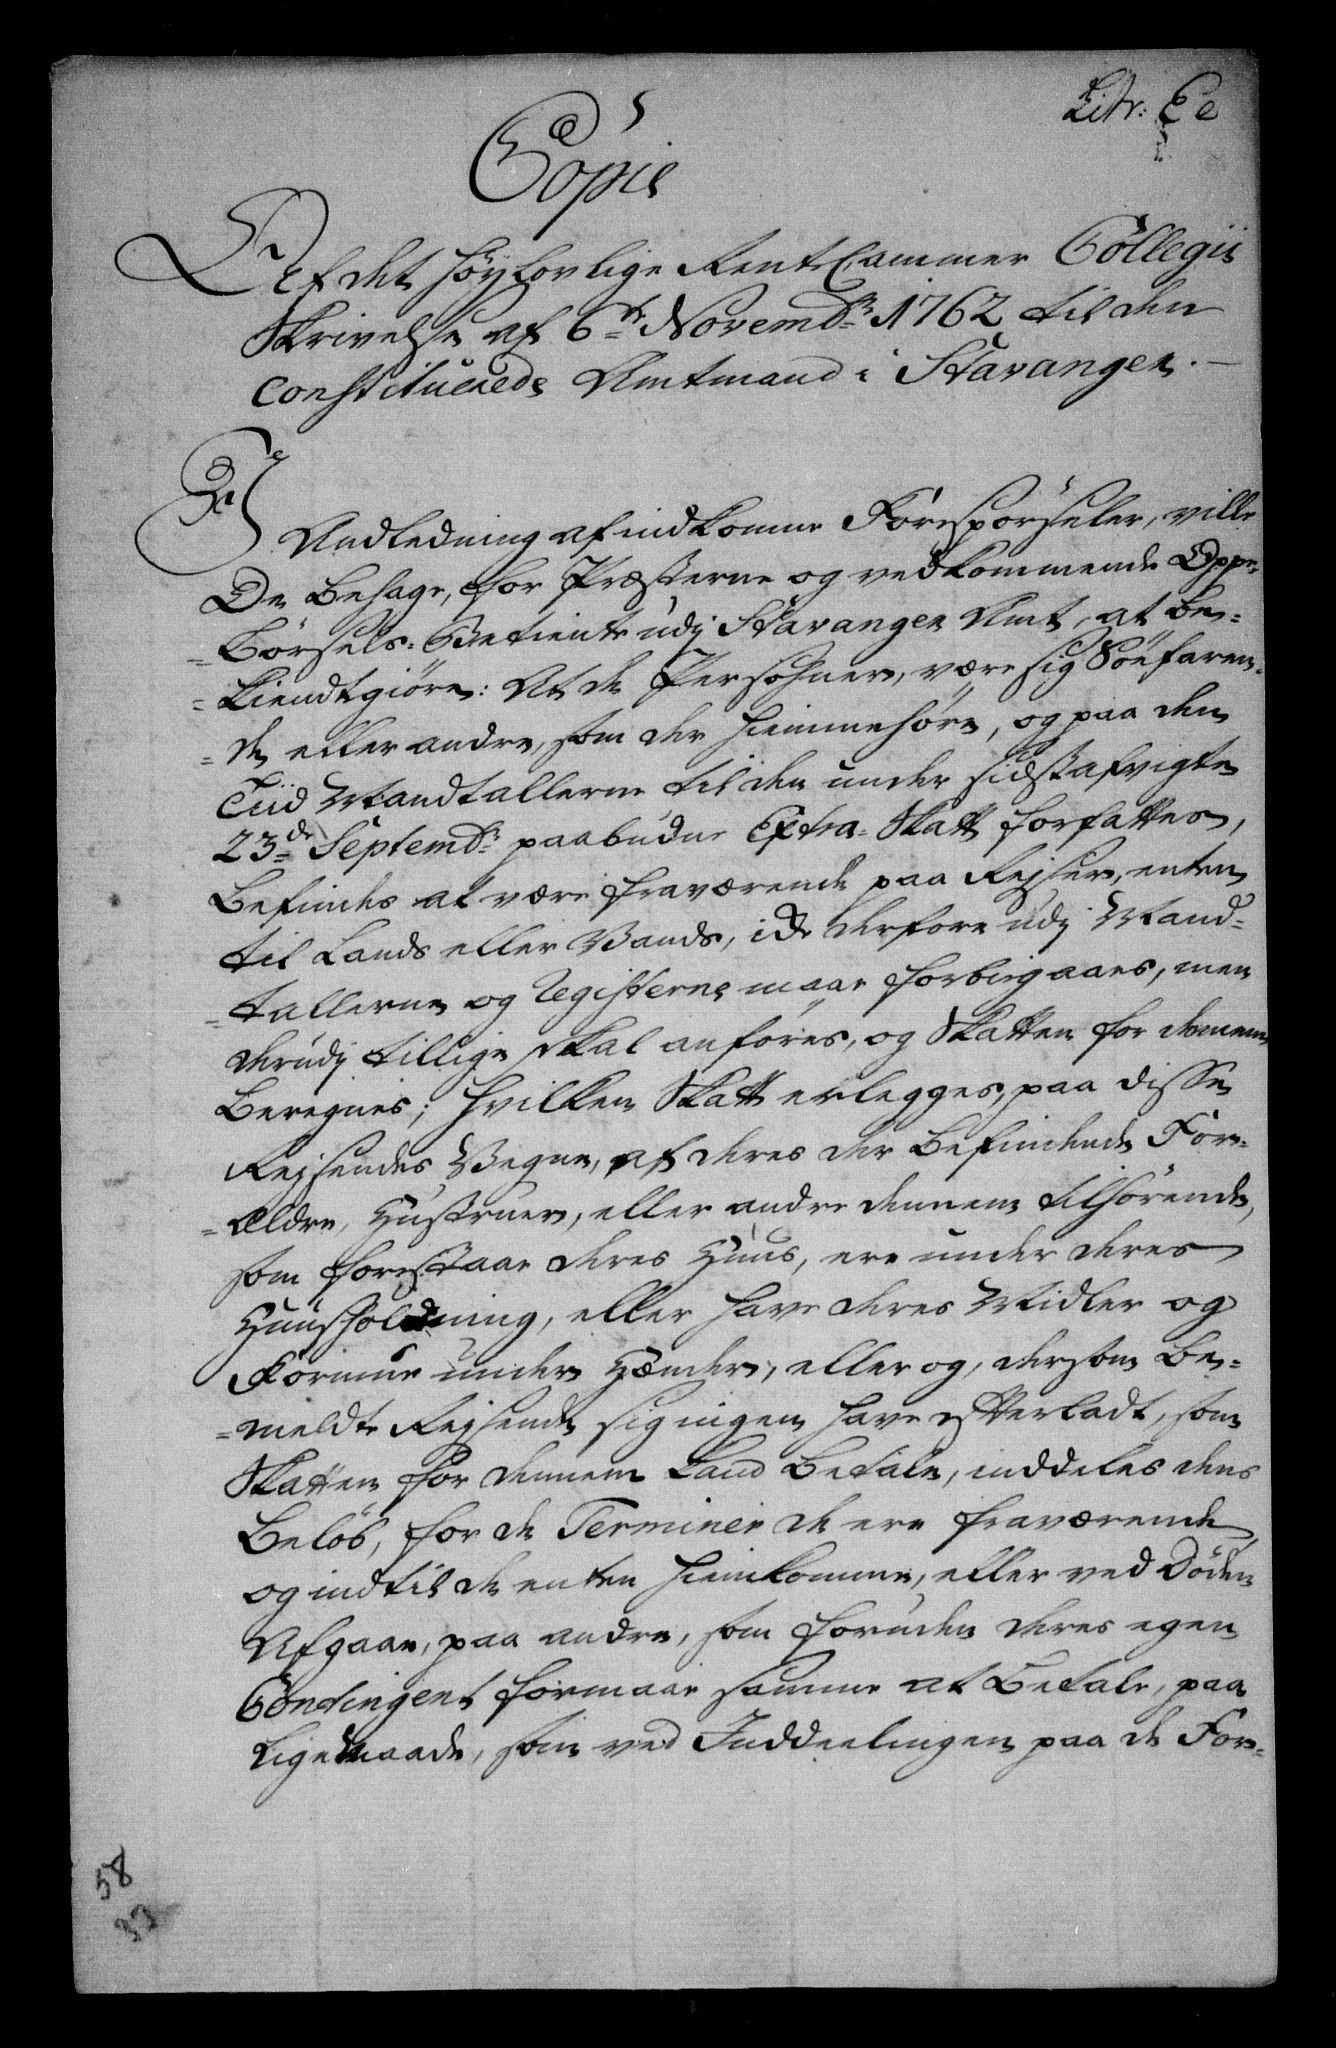 Litr: Ee
Copie
Af det høylovlige RentCammer Collegii
Skrivelse af 6te Novembr 1762 til den
constituerede Amtmand i Stavanger.
I Andledning af indkomne Forespörseler, ville
De behage, for Præsterne og vedkommende Oppe=
=börsels-Betiente udj Stavanger Amt, at be=
=kiendtgiöre: At de Persohner, være sig Söefaren=
=de eller andre, som der hiemmehöre, og paa den
Tiid Mandtallerne til den under sidstafvigte
23de Septembr paabudne Extra-Skatt forfattes,
befindes at være fraværende paa Rejser, enten
til Lands eller Vands, icke derfore udj Mand=
=tallerne og Registerne maae forbiegaaes, men
derudj tillige skal anföres, og Skatten for dennem
beregnes; hvilken Skatt erlegges, paa disse
Rejsendes Vegne, af deres der befindende For=
=ældre, Hustruer, eller andre dennem tilhörende,
som forestaae deres Huus, ere under deres
Huusholdning, eller have deres Midler og
Formue under Hænder, eller og, dersom be=
=meldte Rejsende sig ingen have efterladt, som
Skatten for dennem kand betale, inddeles dens
Belöb, for de Terminer de ere fraværende,
og indtil de enten hiemkomme, eller ved Döden
Afgaae, paa andre, som foruden deres egen
Contingent formaae samme at betale, paa
ligemaade, som ved Inddeelingen paa de For=
58
33